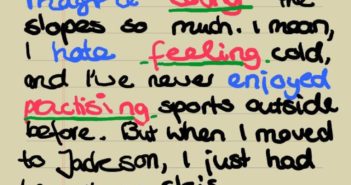 the
slopes so much. I mean,
I hate feeling cold,
and I've never enjoyed
practising sports outside
before. But when I moved
to Jackson, I just had